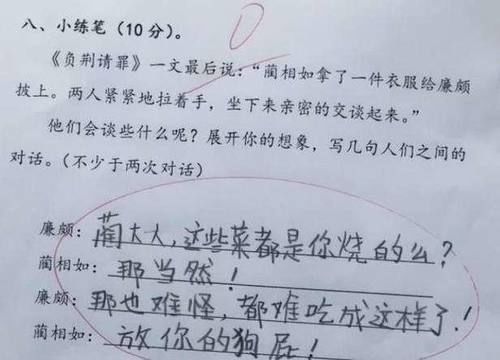 八、小练笔（10分）。
《负荆请罪》一文最后说：“蔺相如拿了一件衣服给廉颇
披上。两人紧紧地拉着手，坐下来亲密的交谈起来。”
他们会谈些什么呢？展开你的想象，写几句人们之间的
对话。（不少于两次对话）
廉颇：蔺大人，这些菜都是你烧的么？
蔺相如：那当然！
廉颇：那也难怪，都难吃成这样了！
蔺相如：放你的狗屁！